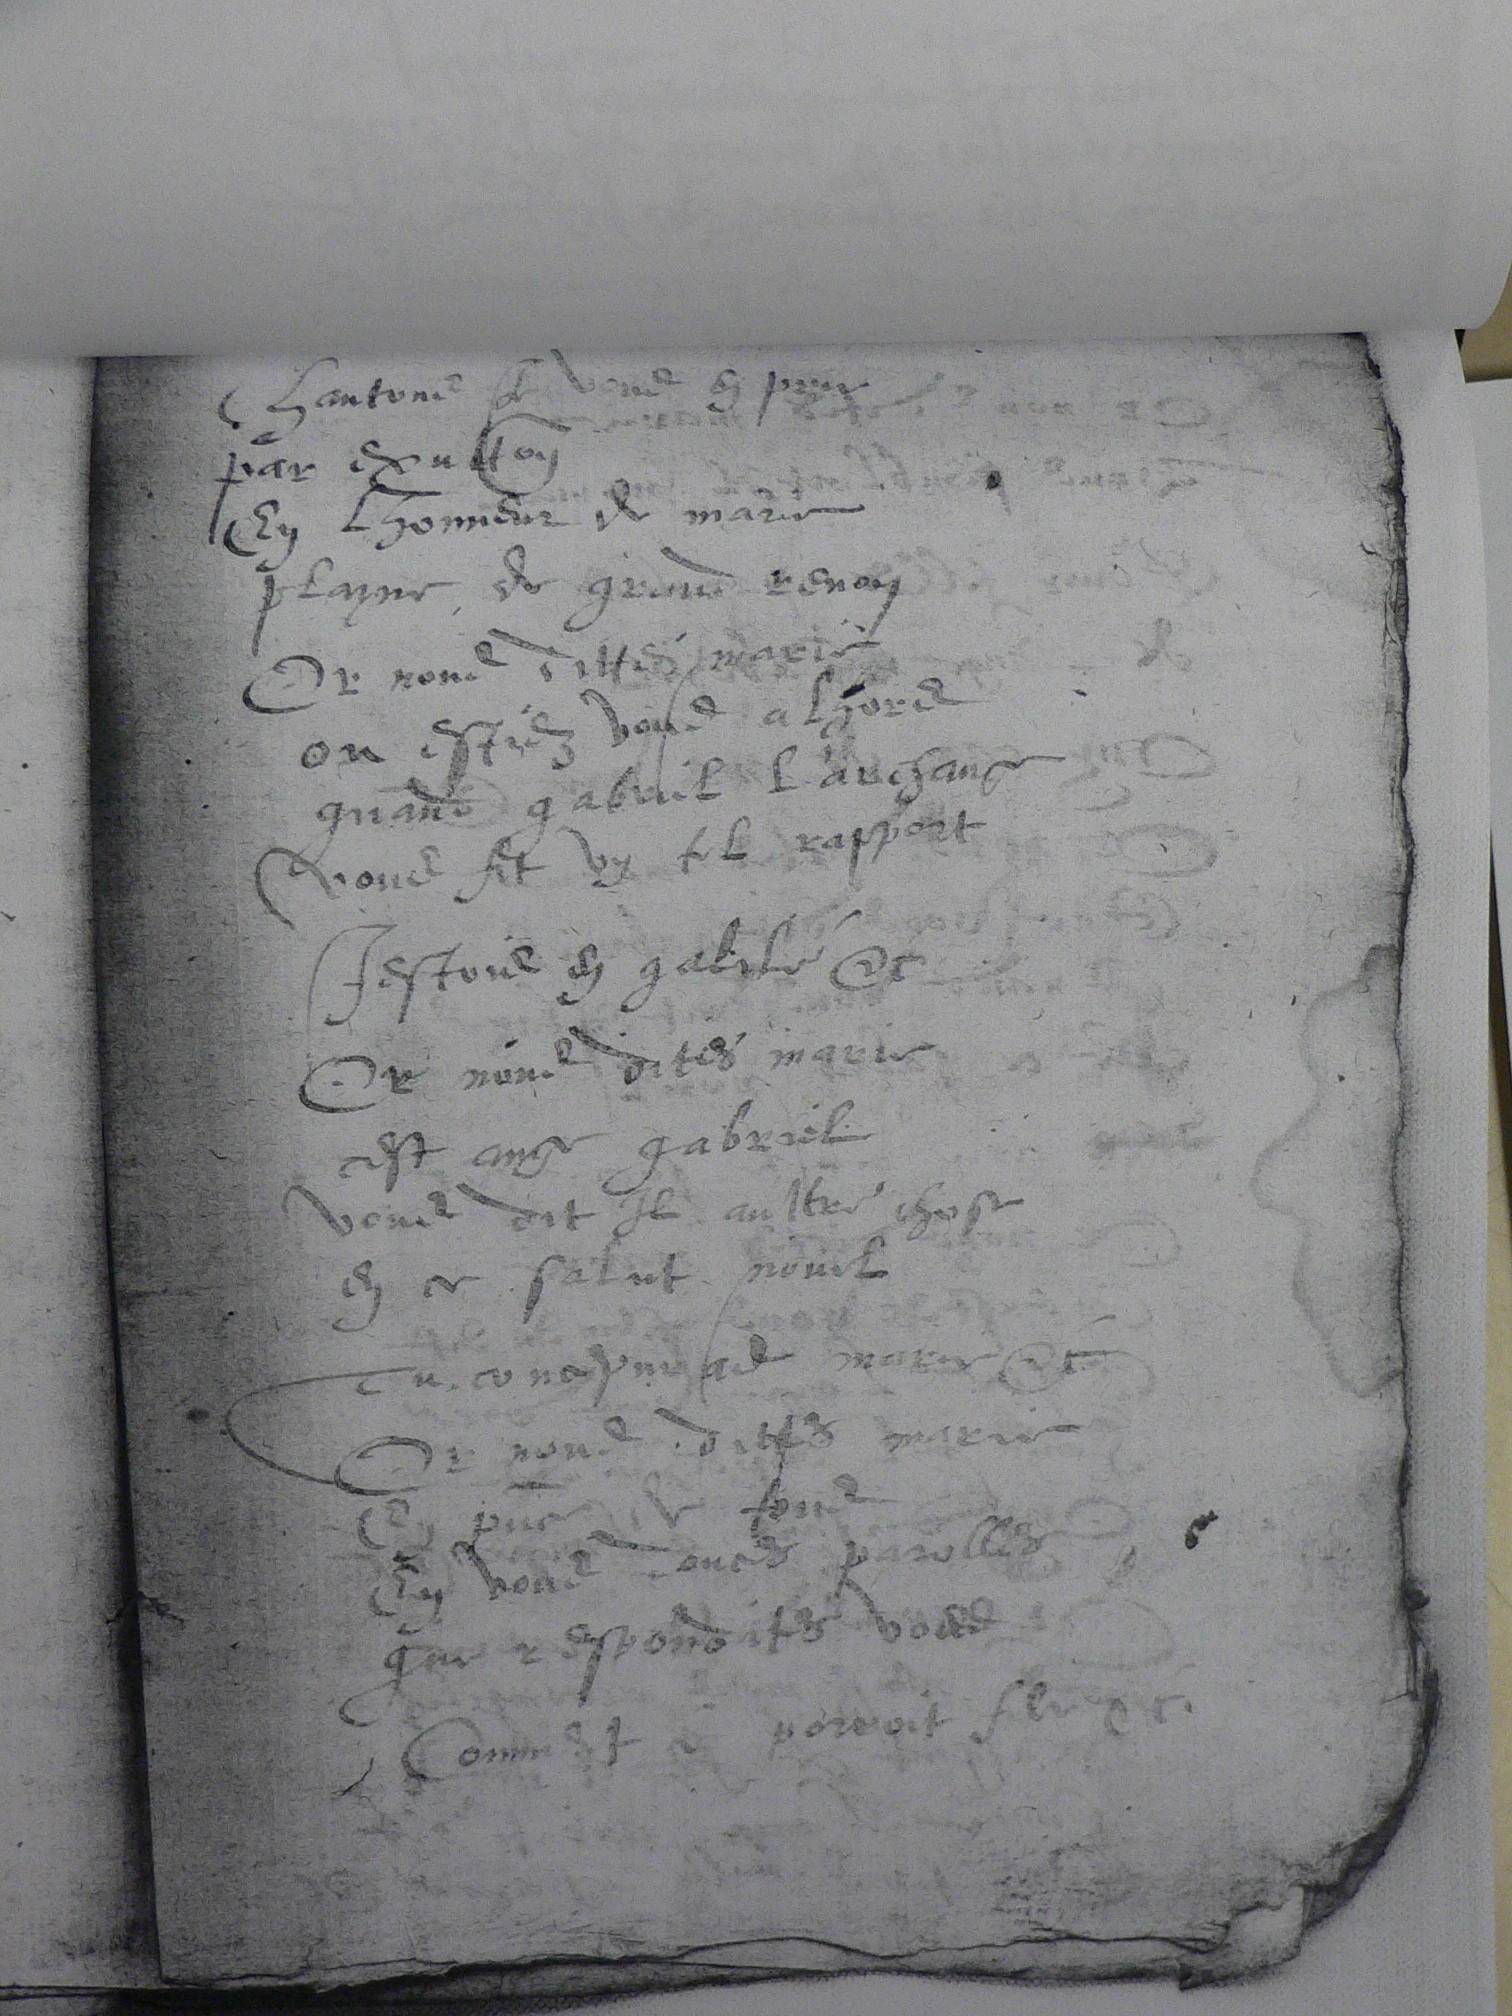 Chantons je vous en prie
par exulton
En Lhonneur de marie
plaine de grand renon
Or nous dittes marie
ou estiez vous alhors
quand gabriel Larchange
vous fit un tel rapport
Jestois en galilé &c
Or nous dites marie
cest ange gabriel
vous dit il aultre chose
en ce salut nouel
Tu conc marie &c
Or nous dittes marie
En vous doulces parolles
que respondites vous
Comment porroit &c.